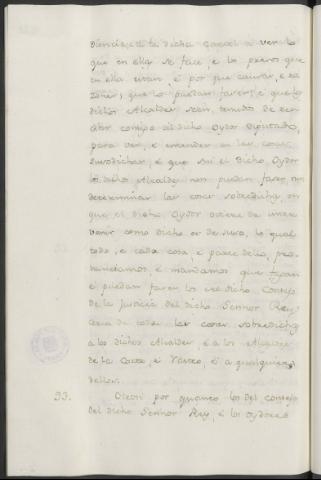 dha de la dicha Carcel a ver lo
que en ella se face, e los presos que
en ella estan, é por que causas, e ra
zones; que lo puedan facer; e que los
dichos Alcaldes sean tenudos de con
sigo al dicho Oydor Diputado,
para ver, e entender en las cosas
susodichas, é que sin el dicho Oydor
los dichos Alcaldes non puedan facer, nin
determinar las cosas sobredichas en
que el dicho Oydor oviere de inter
venir como dicho es de suso, lo qual
todo, e cada cosa, e parte dello, pro
nunciamos, e mandamos que fagan
e puedan facer los del dicho Consejo
de la Justicia del dicho Sennor Rey,
cerca de todas las cosas sobredichas
a los dichos Alcaldes, e a los Alguaciles
de la Corte, e Rastro, é a qualquiera
dellos.
93. Otrosi por quanto los del consejo
del dicho Sennor Rey, e los oydores